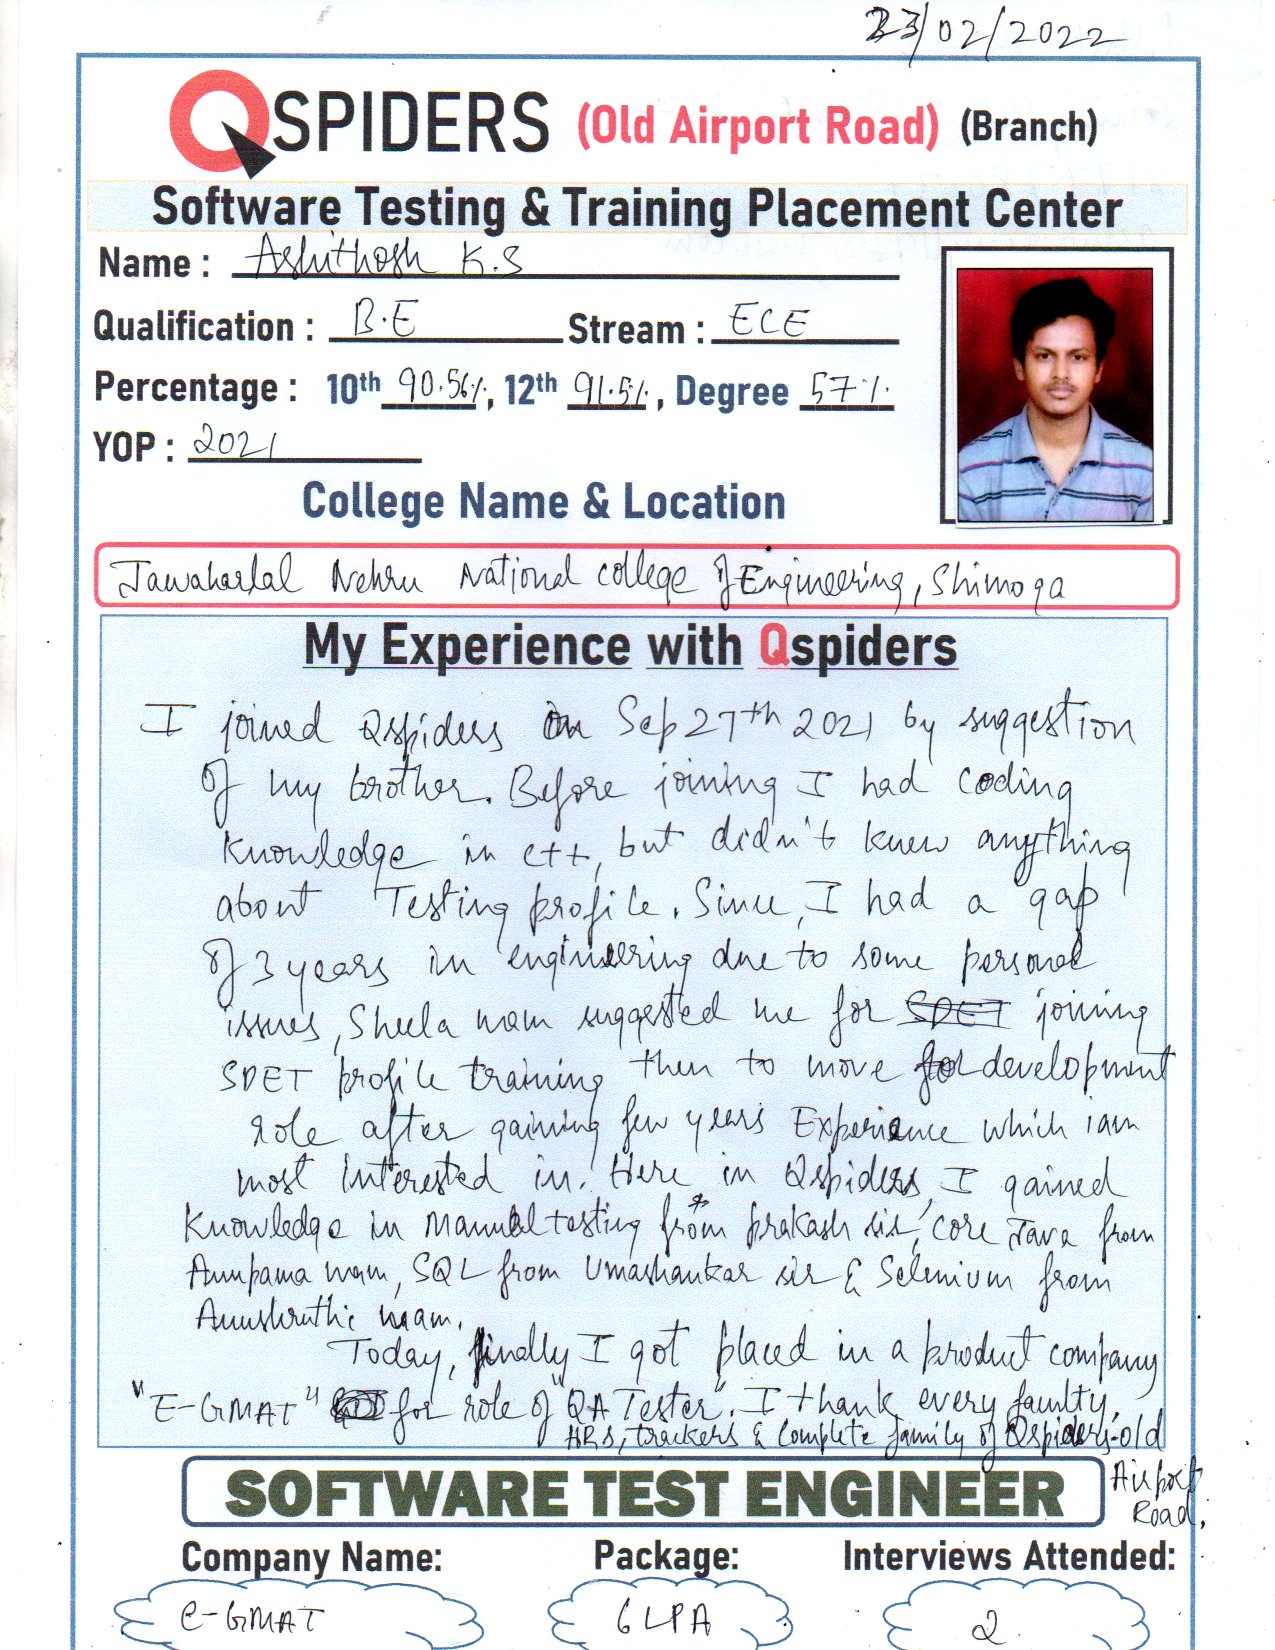 23/02/2022
QSPIDERS (Old Airport Road) (Branch)
Software Testing & Training Placement Center
Name : Ashithosh K.S
Qualification : B.E Stream : ECE
Percentage : 10th 90.56%, 12th 91.5%, Degree 57%.
YOP : 2021
College Name & Location
Jawaharlal Nehru National college of Engineering, Shimoga
My Experience with Qspiders
I joined Qspiders on Sep 27th 2021 by suggestion
of my brother. Before joining I had coding
knowledge in c++, but didn't knew anything
about Testing profile. Since, I had a gap
of 3 years in engineering due to some personal
issues, Sheela mam suggested me for SDET joining
SDET profile training then to move for development
role after gaining few years Experience which iam
most Interested in. Here in Qspiders, I gained
Knowledge in Manual testing from prakash sir, core Java from
Anupama mam, SQL from Umashankar sir & Selenium from
Anushruthi maam.
Today, finally I got placed in a product company
"E-GMAT" for role of "QA Tester". I thank every faulty,
HRS, trackers & Complete family of Qspiders-old
Airport
Road.
SOFTWARE TEST ENGINEER
Company Name: Package: Interviews Attended:
e-GMAT 6 LPA 2